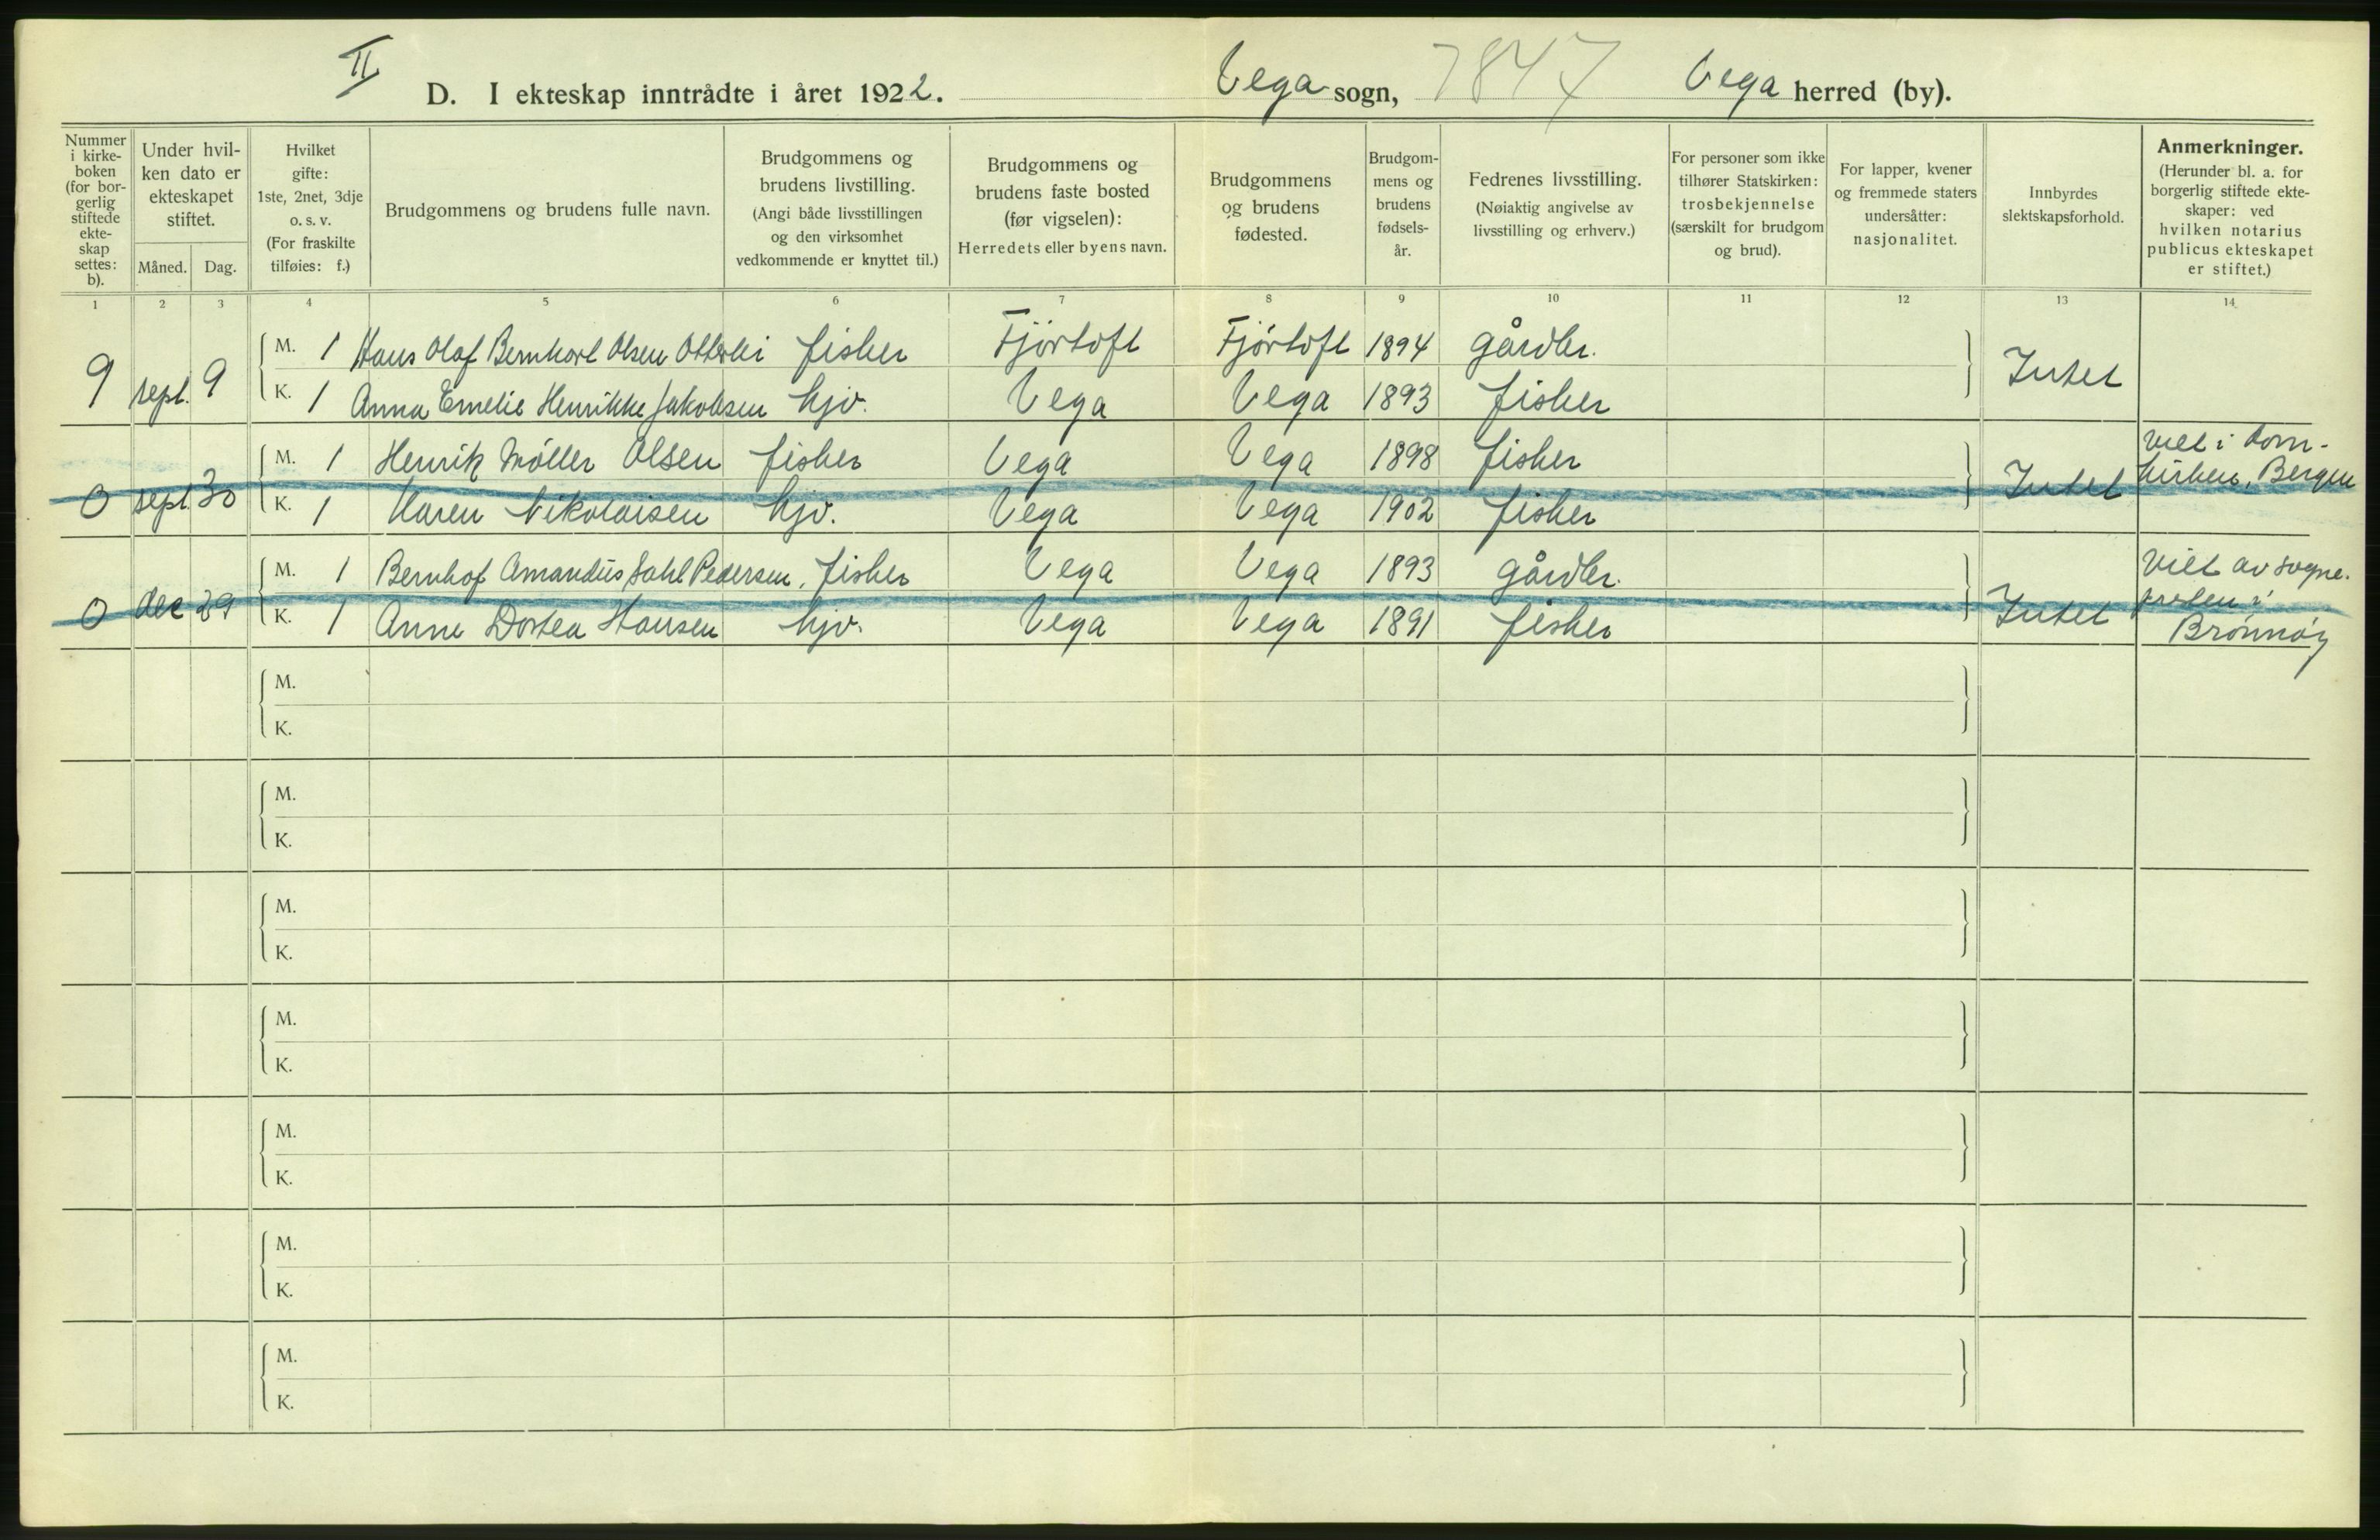 II
D. I ekteskap inntrådte i året 1922. Vega sogn, 7847 Vega herred (by).
Nummer i kirke-boken (for bor-gerlig stiftede ekte-skap settes: b).
Under hvil-ken dato er ekteskapet stiftet.
Måned. Dag.
Hvilket gifte: 1ste, 2net, 3dje o. s. v. (For fraskilte tilføies: f.)
Brudgommens og brudens fulle navn.
Brudgommens og brudens livstilling. (Angi både livsstillingen og den virksomhet vedkommende er knyttet til.)
Brudgommens og brudens faste bosted (før vigselen): Herredets eller byens navn.
Brudgommens og brudens fødested.
Brudgom-mens og brudens fødsels-år.
Fedrenes livsstilling. (Nøiaktig angivelse av livsstilling og erhverv.)
For personer som ikke tilhører Statskirken: trosbekjennelse (særskilt for brudgom og brud).
For lapper, kvener og fremmede staters undersåtter: nasjonalitet.
Innbyrdes slektskapsforhold.
Anmerkninger. (Herunder bl. a. for borgerlig stiftede ekte-skaper: ved hvilken notarius publicus ekteskapet er stiftet.)
1 2 3 4 5 6 7 8 9 10 11 12 13 14
M. 1 Hans Olaf Bernhard Olsen Otterlei fisker Fjörtoft Fjörtoft 1894 gårdbr.
9 sept. 9 Intet
K. 1 Anna Emelie Henrikke Jakobsen hjv. Vega Vega 1893 fisker
M. 1 Henrik Möller Olsen fisker Vega Vega 1898 fisker viet i dom-
0 sept 30 Intet kirken, Bergen
K. 1 Karen Nikolaisen hjv. Vega Vega 1902 fisker
M. 1 Bernhof Amandus Dahl Pedersen, fisker Vega Vega 1893 gårdbr. Viet av sogne-
0 dec 29 Intet presten i
K. 1 Anne Dortea Hansen hjv. Vega Vega 1891 fisker Brönnöy
M.
K.
M.
K.
M.
K.
M.
K.
M.
K.
M.
K.
M.
K.